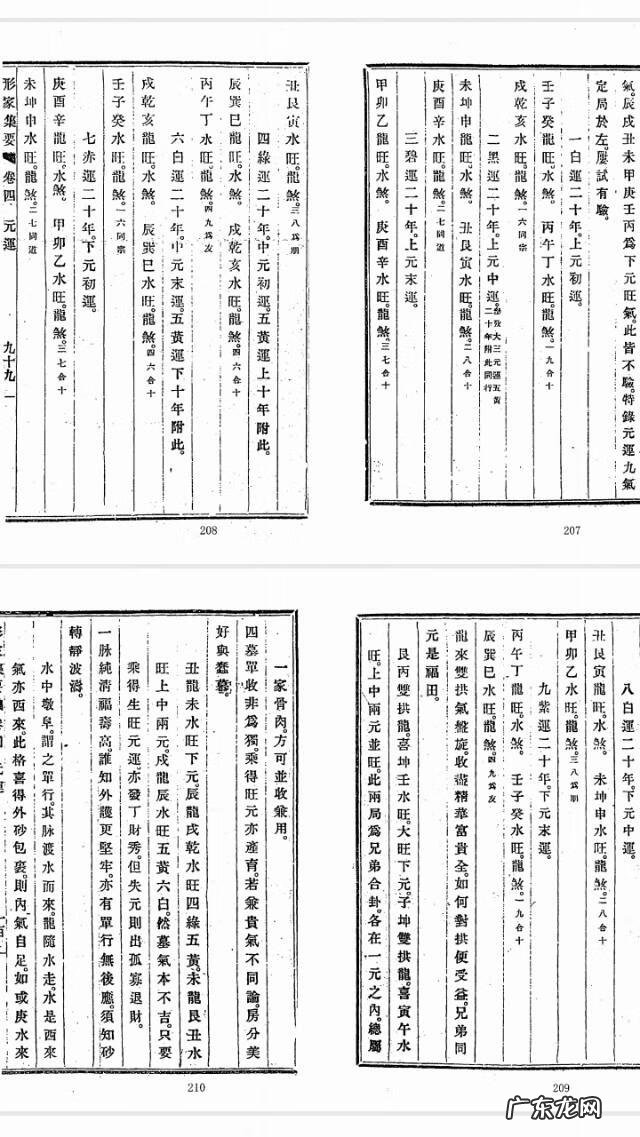 氣。辰戌丑未甲庚壬丙爲下元旺氣。此皆不驗。特錄元運九氣
定局於左。屢試有驗。
一白運二十年。上元初運。
壬子癸龍旺。水煞。 丙午丁水旺。龍煞。一九合十
戌乾亥龍旺。水煞。一六同宗
二黑運二十年。上元中運。大三元運五黃二十年附此同行
未坤申龍旺。水煞。 丑艮寅水旺。龍煞。二八合十
庚酉辛水旺。龍煞。二七同道
三碧運二十年。上元末運。
甲卯乙龍旺。水煞。 庚酉辛水旺。龍煞。三七合十
207
丑艮寅水旺。龍煞。三八爲朋
四綠運二十年。中元初運。五黃運上十年附此。
辰巽巳龍旺。水煞。 戌乾亥水旺。龍煞。四六合十
丙午丁水旺。龍煞。四九爲友
六白運二十年。中元末運。五黃運下十年附此。
戌乾亥龍旺。水煞。 辰巽巳水旺。龍煞。四六合十
壬子癸水旺。龍煞。一六同宗
七赤運二十年。下元初運。
庚酉辛龍旺。水煞。 甲卯乙水旺。龍煞。三七合十
未坤申水旺。龍煞。二七同道
形家集要 卷四 元運 九十九
208
八白運二十年。下元中運。
丑艮寅龍旺。水煞。 未坤申水旺。龍煞。二八合十
甲卯乙水旺。龍煞。三八爲朋
九紫運二十年。下元末運。
丙午丁龍旺。水煞。 壬子癸水旺。龍煞。一九合十
辰巽巳水旺。龍煞。四九爲友
龍來雙拱氣盤旋。收盡精華富貴全。如何對拱便受益。兄弟同
元是福田。
艮丙雙拱龍。喜坤壬水旺。大旺下元。子坤雙拱龍。喜寅午水
旺。上中兩元並旺。此兩局爲兄弟合卦。各在一元之內。總屬
209
一家骨肉。方可並收兼用。
四墓單收非爲獨。乘得旺元亦產育。若兼貴氣不同論。房分美
好與蠢。
丑龍未水旺下元。辰龍戌乾水旺四綠五黃。未龍艮丑水
旺上中兩元。戌龍辰水旺五黃六白。然墓氣本不吉。只要
乘得生旺元運。亦發丁財秀。但失元則出孤寡退財。
一脉純淸福壽高。誰知外護更堅牢。亦有單行無後應。須知砂
轉靜波濤。
水中墩阜。謂之單行。其脉渡水而來。龍隨水走。水是西來
氣亦西來。此格喜得外砂包裹。則內氣自足。如或庚水來
210
广东龙网